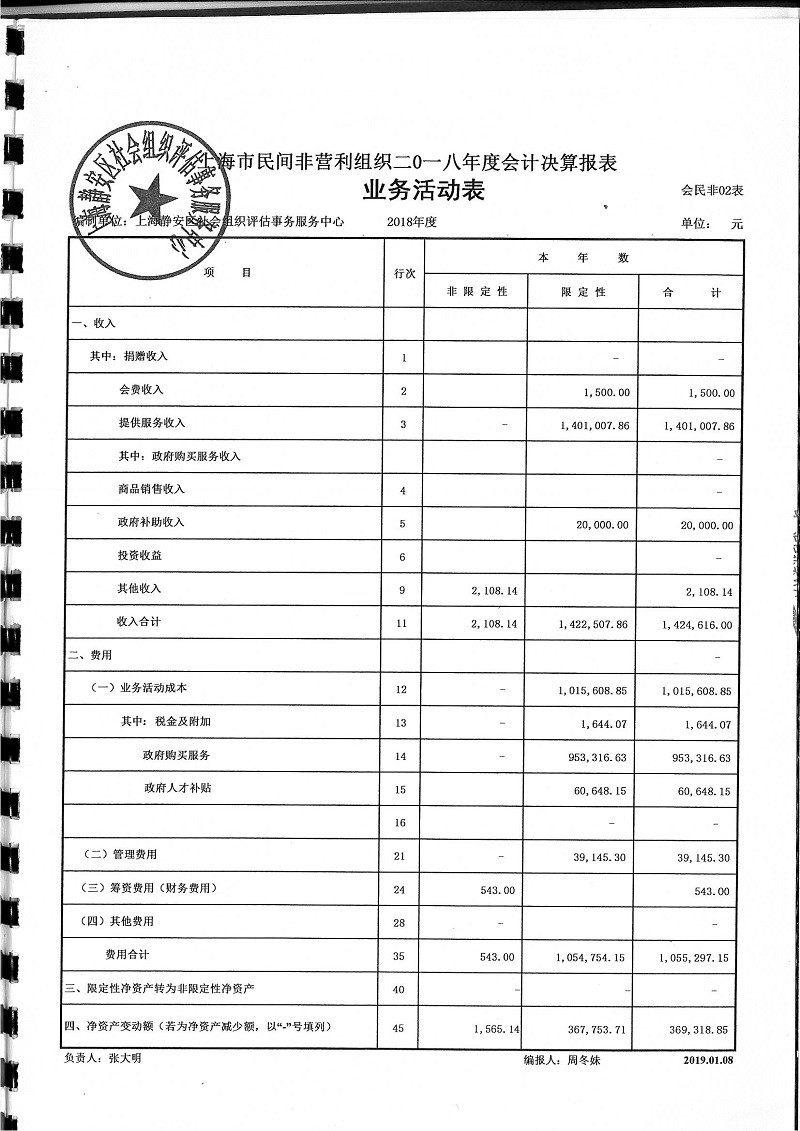 上海市民间非营利组织二0一八年度会计决算报表
业务活动表
会民非02表
编制单位：上海静安区社会组织评估事务服务中心 2018年度 单位： 元
上海静安区社会组织评估事务服务中心
项 目 行次 本 年 数
非 限 定 性 限 定 性 合 计
一、收入
其中：捐赠收入 1 – –
会费收入 2 1,500.00 1,500.00
提供服务收入 3 – 1,401,007.86 1,401,007.86
其中：政府购买服务收入 –
商品销售收入 4 –
政府补助收入 5 20,000.00 20,000.00
投资收益 6 –
其他收入 9 2,108.14 2,108.14
收入合计 11 2,108.14 1,422,507.86 1,424,616.00
二、费用 –
（一）业务活动成本 12 – 1,015,608.85 1,015,608.85
其中：税金及附加 13 – 1,644.07 1,644.07
政府购买服务 14 – 953,316.63 953,316.63
政府人才补贴 15 60,648.15 60,648.15
16 – –
（二）管理费用 21 – 39,145.30 39,145.30
（三）筹资费用（财务费用） 24 543.00 543.00
（四）其他费用 28 – –
费用合计 35 543.00 1,054,754.15 1,055,297.15
三、限定性净资产转为非限定性净资产 40 – – –
四、净资产变动额（若为净资产减少额，以“-”号填列） 45 1,565.14 367,753.71 369,318.85
负责人：张大明 编报人：周冬妹 2019.01.08